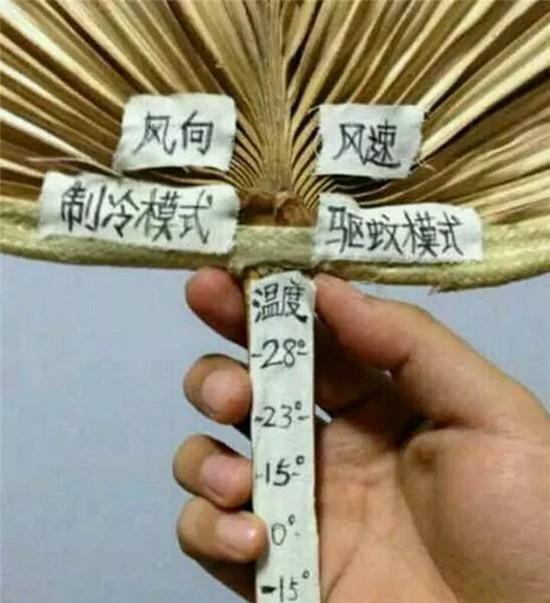 风向
风速
制冷模式
驱蚊模式
温度
-28°-
-23°-
-15°
0°
-15°